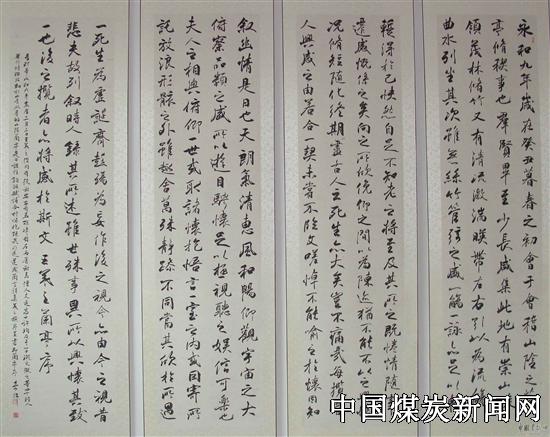 永和九年歲在癸丑暮春之初會于會稽山陰之
亭脩稧事也羣賢畢至少長咸集此地有崇山
領茂林脩竹又有清流激湍暎帶左右引以為流
曲水列坐其次雖無絲竹管弦之盛一觴一詠亦足以
叙幽情是日也天朗氣清惠風和暢仰觀宇宙之大
俯察品類之盛所以遊目騁懷足以極視聽之娛信可樂也
夫人之相與俯仰一世或取諸懷抱悟言一室之內或因寄所
託放浪形骸之外雖趣舍萬殊靜躁不同當其欣於所遇
輒深於己快然自足不知老之將至及其所之既惓情隨
遷感慨係之矣向之所欣俛仰之間以為陳迹猶不能不以之
況脩短隨化終期盡古人云死生亦大矣豈不痛哉每攬
人興感之由若合一契未嘗不臨文嗟悼不能喻之於懷固知
一死生為虛誕齊彭殤為妄作後之視今亦由今之視昔
悲夫故列叙時人錄其所述雖世殊事異所以興懷其致
一也後之攬者亦將感於斯文 王羲之蘭亭序
中国煤炭新闻网